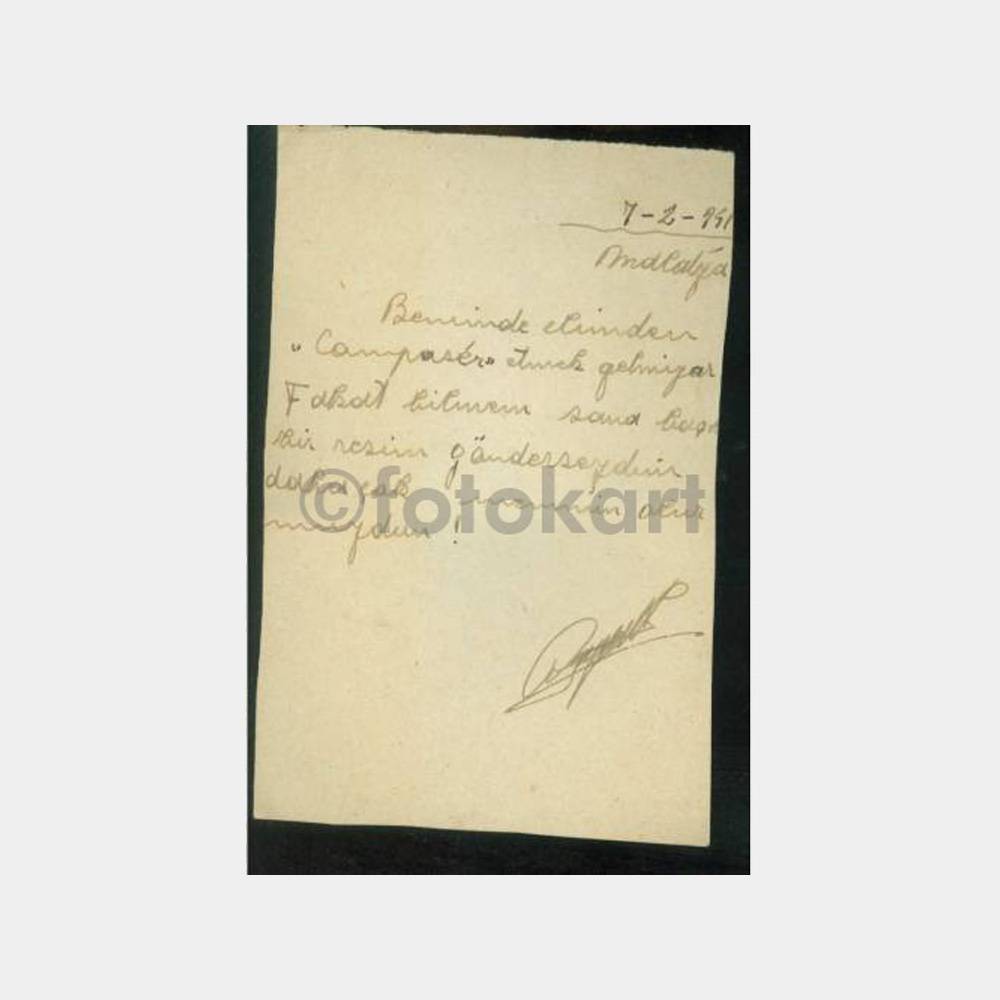 7-2-941
Malatya
Beninde elimden
"Compasér" etmek gelmiyor
Fakat bilmem sana başka
bir resim gönderseydim
daha çok memnun olur
muydun !
©fotokart